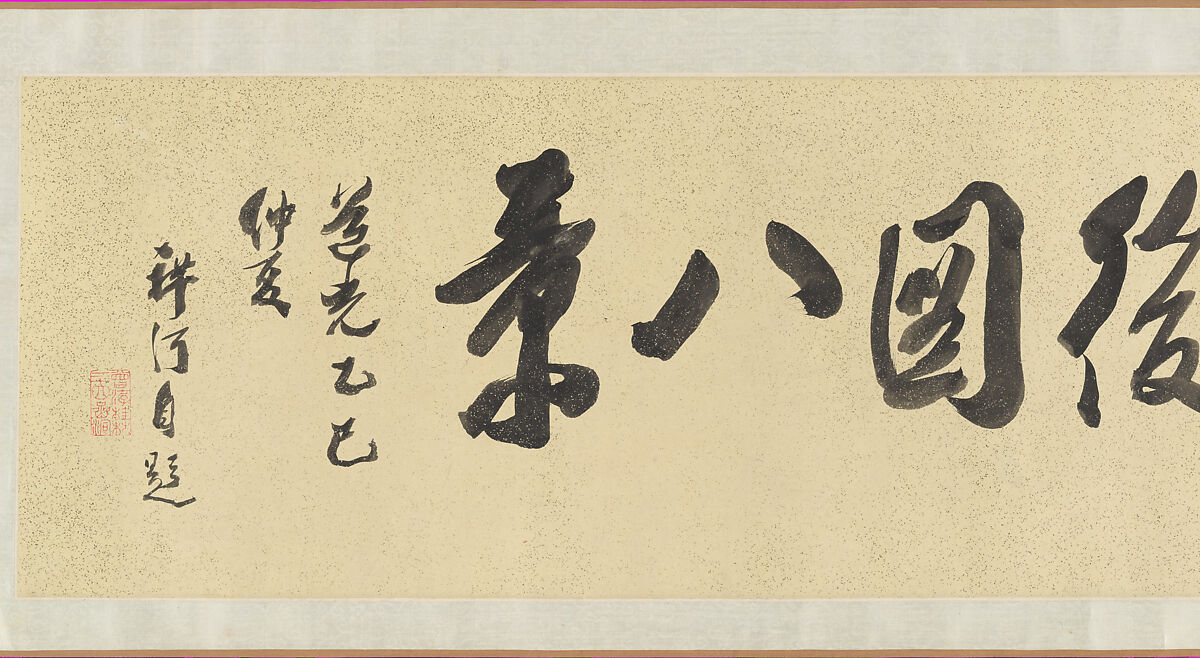 後園八景
道光乙巳
仲夏
自題